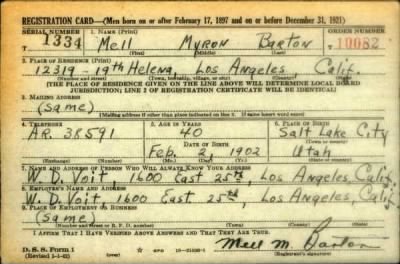 REGISTRATION CARD—(Men born on or after February 17, 1897 and on or before December 31, 1921)
SERIAL NUMBER 1. NAME (Print) ORDER NUMBER
1334 Mell Myron Barton 10082
(First) (Middle) (Last)
3. PLACE OF RESIDENCE (Print)
12319 19th Helena, Los Angeles, Calif.
(Number and street) (Town, township, village, or city) (County) (State)
[THE PLACE OF RESIDENCE GIVEN ON THE LINE ABOVE WILL DETERMINE LOCAL BOARD
JURISDICTION; LINE 2 OF REGISTRATION CERTIFICATE WILL BE IDENTICAL]
3. MAILING ADDRESS
(same)
[Mailing address if other than place indicated on line 2. If same insert word same]
4. TELEPHONE 5. AGE IN YEARS 6. PLACE OF BIRTH
AR. 38591 40 Salt Lake City
DATE OF BIRTH (Town or county)
Feb. 2, 1902 Utah
(Exchange) (Number) (Mo.) (Day) (Yr.) (State or country)
7. NAME AND ADDRESS OF PERSON WHO WILL ALWAYS KNOW YOUR ADDRESS
W. D. Voit, 1600 East 25th, Los Angeles, Calif.
8. EMPLOYER'S NAME AND ADDRESS
W. D. Voit, 1600 East 25th, Los Angeles, Calif.
9. PLACE OF EMPLOYMENT OR BUSINESS
(same)
(Number and street or R. F. D. number) (Town) (County) (State)
I AFFIRM THAT I HAVE VERIFIED ABOVE ANSWERS AND THAT THEY ARE TRUE.
D. S. S. Form 1 (over) GPO Mell M. Barton
(Revised 1-1-42) (Registrant's signature)